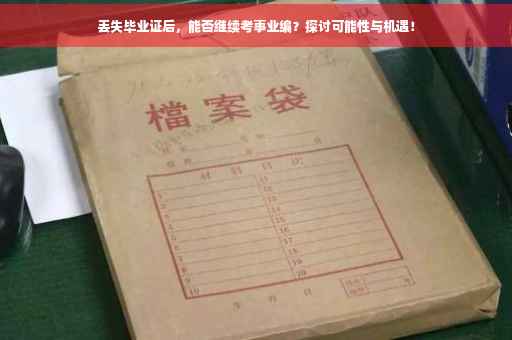 丢失毕业证后，能否继续考事业编？探讨可能性与机遇！
檔案袋
材料目次
1
2
3
4
5
6
7
8
9
10
11
12
13
14
15
16
17
18
19
20
年 月 日